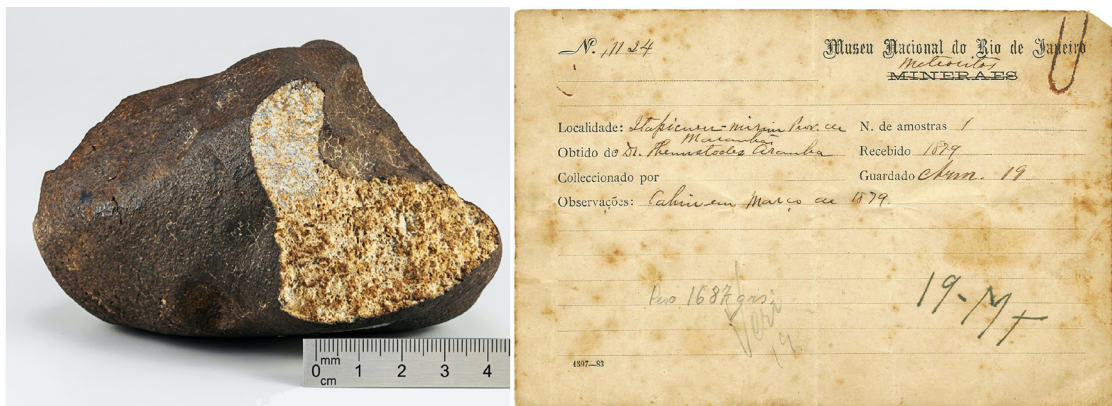 mm
0 1 2 3 4
cm
N. 1124
Museu Nacional do Rio de Janeiro
Meteoritos
MINERAES
Localidade: Itapicuru-mirim Prov. de
Maranhão
N. de amostras 1
Obtido de Dr. Themistocles Aranha
Recebido 1879
Colleccionado por
Guardado Arm. 19
Observações: Cahiu em Março de 1879.
Peso 1687 grs.
19-
4697—83